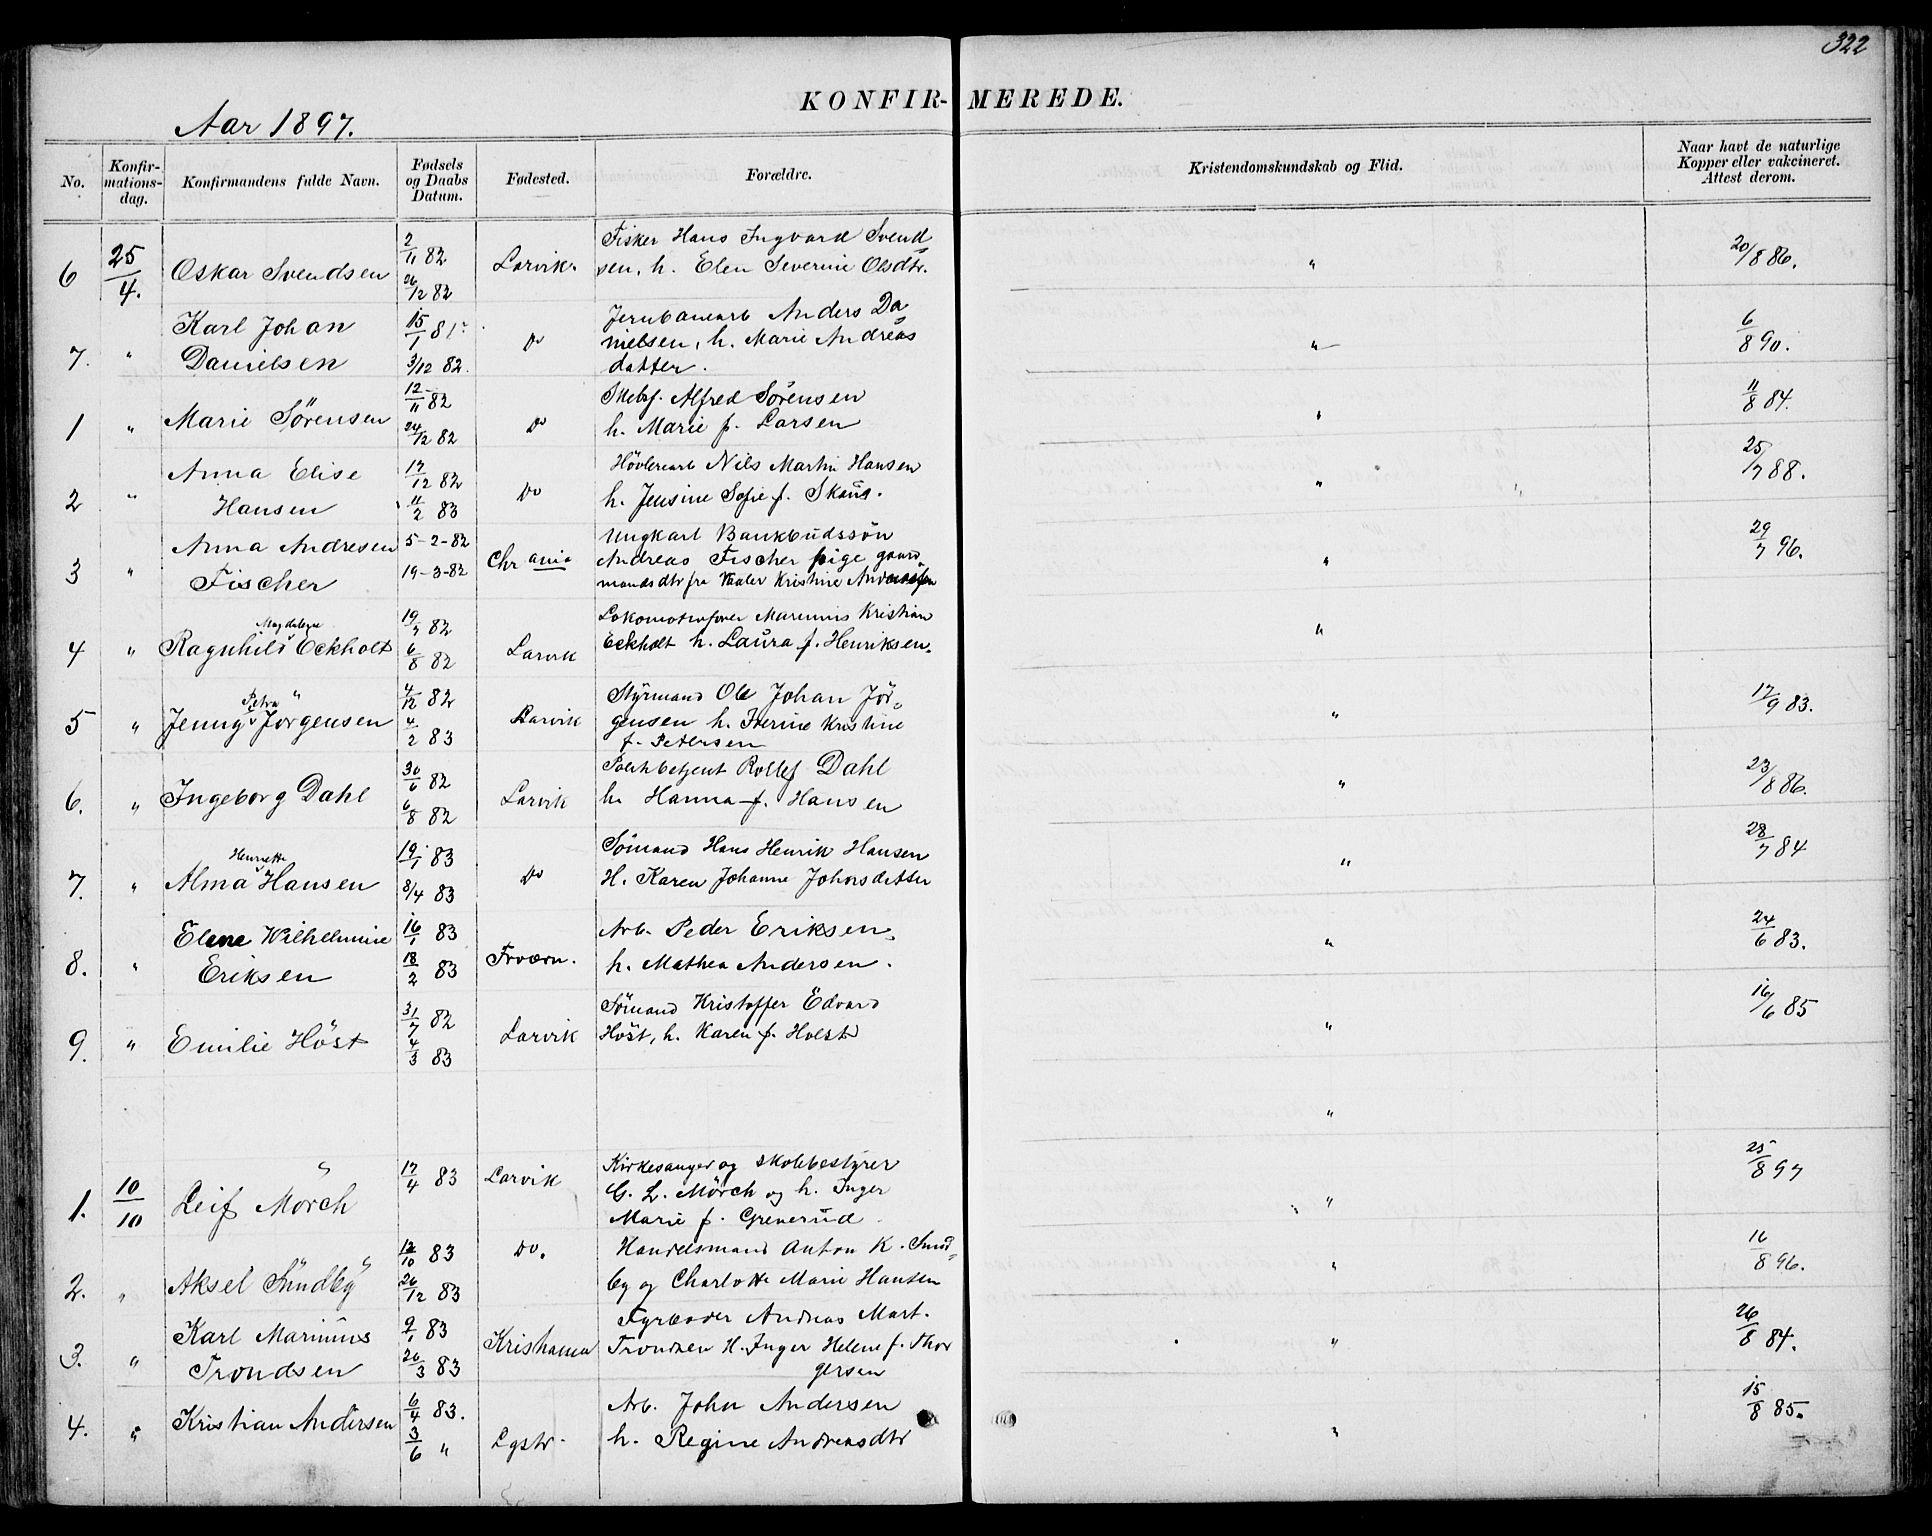 322
KONFIR-MEREDE.
Aar 1897.
No. Konfir-mations-dag. Konfirmandens fulde Navn. Fødsels og Daabs Datum. Fødested. Forældre. Kristendomskundskab og Flid. Naar havt de naturlige Kopper eller vakcineret. Attest derom.
2/11 82 Fisker Hans Ingvard Svend
6 25/4. Oskar Svendsen Larvik. sen, h. Elen Severine Olsdtr. " 20/8 86.
26/12 82
Karl Johan 15/1 81 Jernbanearb Anders Da
7. " Do nielsen, h. Marie Andreas " 6/8 90.
Danielsen 3/12 82. datter.
12/11 82 Alfred Sörensen 11/8 84.
1 " Marie Sörensen 24/12 82 Do h. Marie f. Larsen "
Anna Elise 17/12 82 Hövlerearb Nils Martin Hansen 25/7 88.
2 " Hansen 11/2 83 Do h. Jensine Sofie f. Skaus. "
Anna Andresen 5-2-82 Ungkarl Bankbudssön 29/7 96.
3 " Chrania Andreas Fischer pige gaard "
Fischer 19-3-82 mandsdtr fra Vaaler Kristine
Magdalene 19/7 82 Marinius Kristian
4 " Ragnhild Eckholt 6/8 82 Larvik Eckholt h. Laura f. Henriksen. "
Petra " 4/12 82 Styrmand Ole Johan Jör 17/9 83.
5 " Jenny Jörgensen 4/2 83 Larvik gensen h. Iverine Kristine "
f. Petersen
30/6 82 Politibetjent Rollef Dahl 23/8 86.
6. " Ingeborg Dahl 6/8 82 Larvik h. Hanna f. Hansen "
Henriette 19/1 83 Sömand Hans Henrik Hansen 28/7 84
7. " Alma Hansen 8/4 83 Do H. Karen Johanne Johnsdatter "
Elene Wilhelmine 16/1 83 Arb. Peder Eriksen, 24/6 83.
8. " Eriksen 18/2 83 Frværn. h. Mathea Andersen. "
31/7 82 Sömand Kristoffer Edvard 16/6 85
9. " Emilie Höst 4/3 83 Larvik Höst, h. Karen f. Holst "
"
" 17/4 83 Larvik Kirkesanger og skolebestyrer 25/8 97
1. 10/10 Leif Mörch G. L. Mörch og h. Inger "
Marie f. Grenerud
12/10 83 Do. Handelsmand Anton K. Sund 16/8 96.
2. " Aksel Sundby 26/12 83 by og Charlotte Marie Hansen "
Karl Marinius 9/1 83 Fyrbøder Andreas Mart. 26/8 84.
3. " Kristiania Trondsen H. Inger Helene f. Thor "
Trondsen 26/3 83 gersen
6/4 83. Arb. John Andersen 15/8 85.
4. " Kristian Andersen 3/6 " Lgstr. h. Regine Andreasdtr "